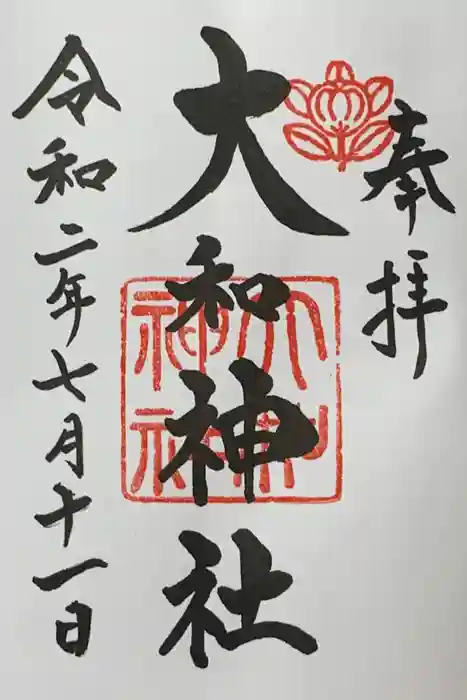 奉拝
大和神社
大和神社
令和二年七月十一日